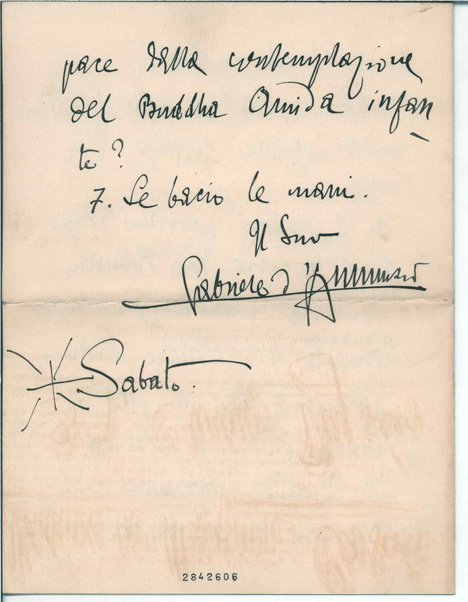 pace della contemplazione
del Buddha Amida infan
te?
7. Le bacio le mani.
Il Suo
Gabriele d'Annunzio
Sabato.
2842606